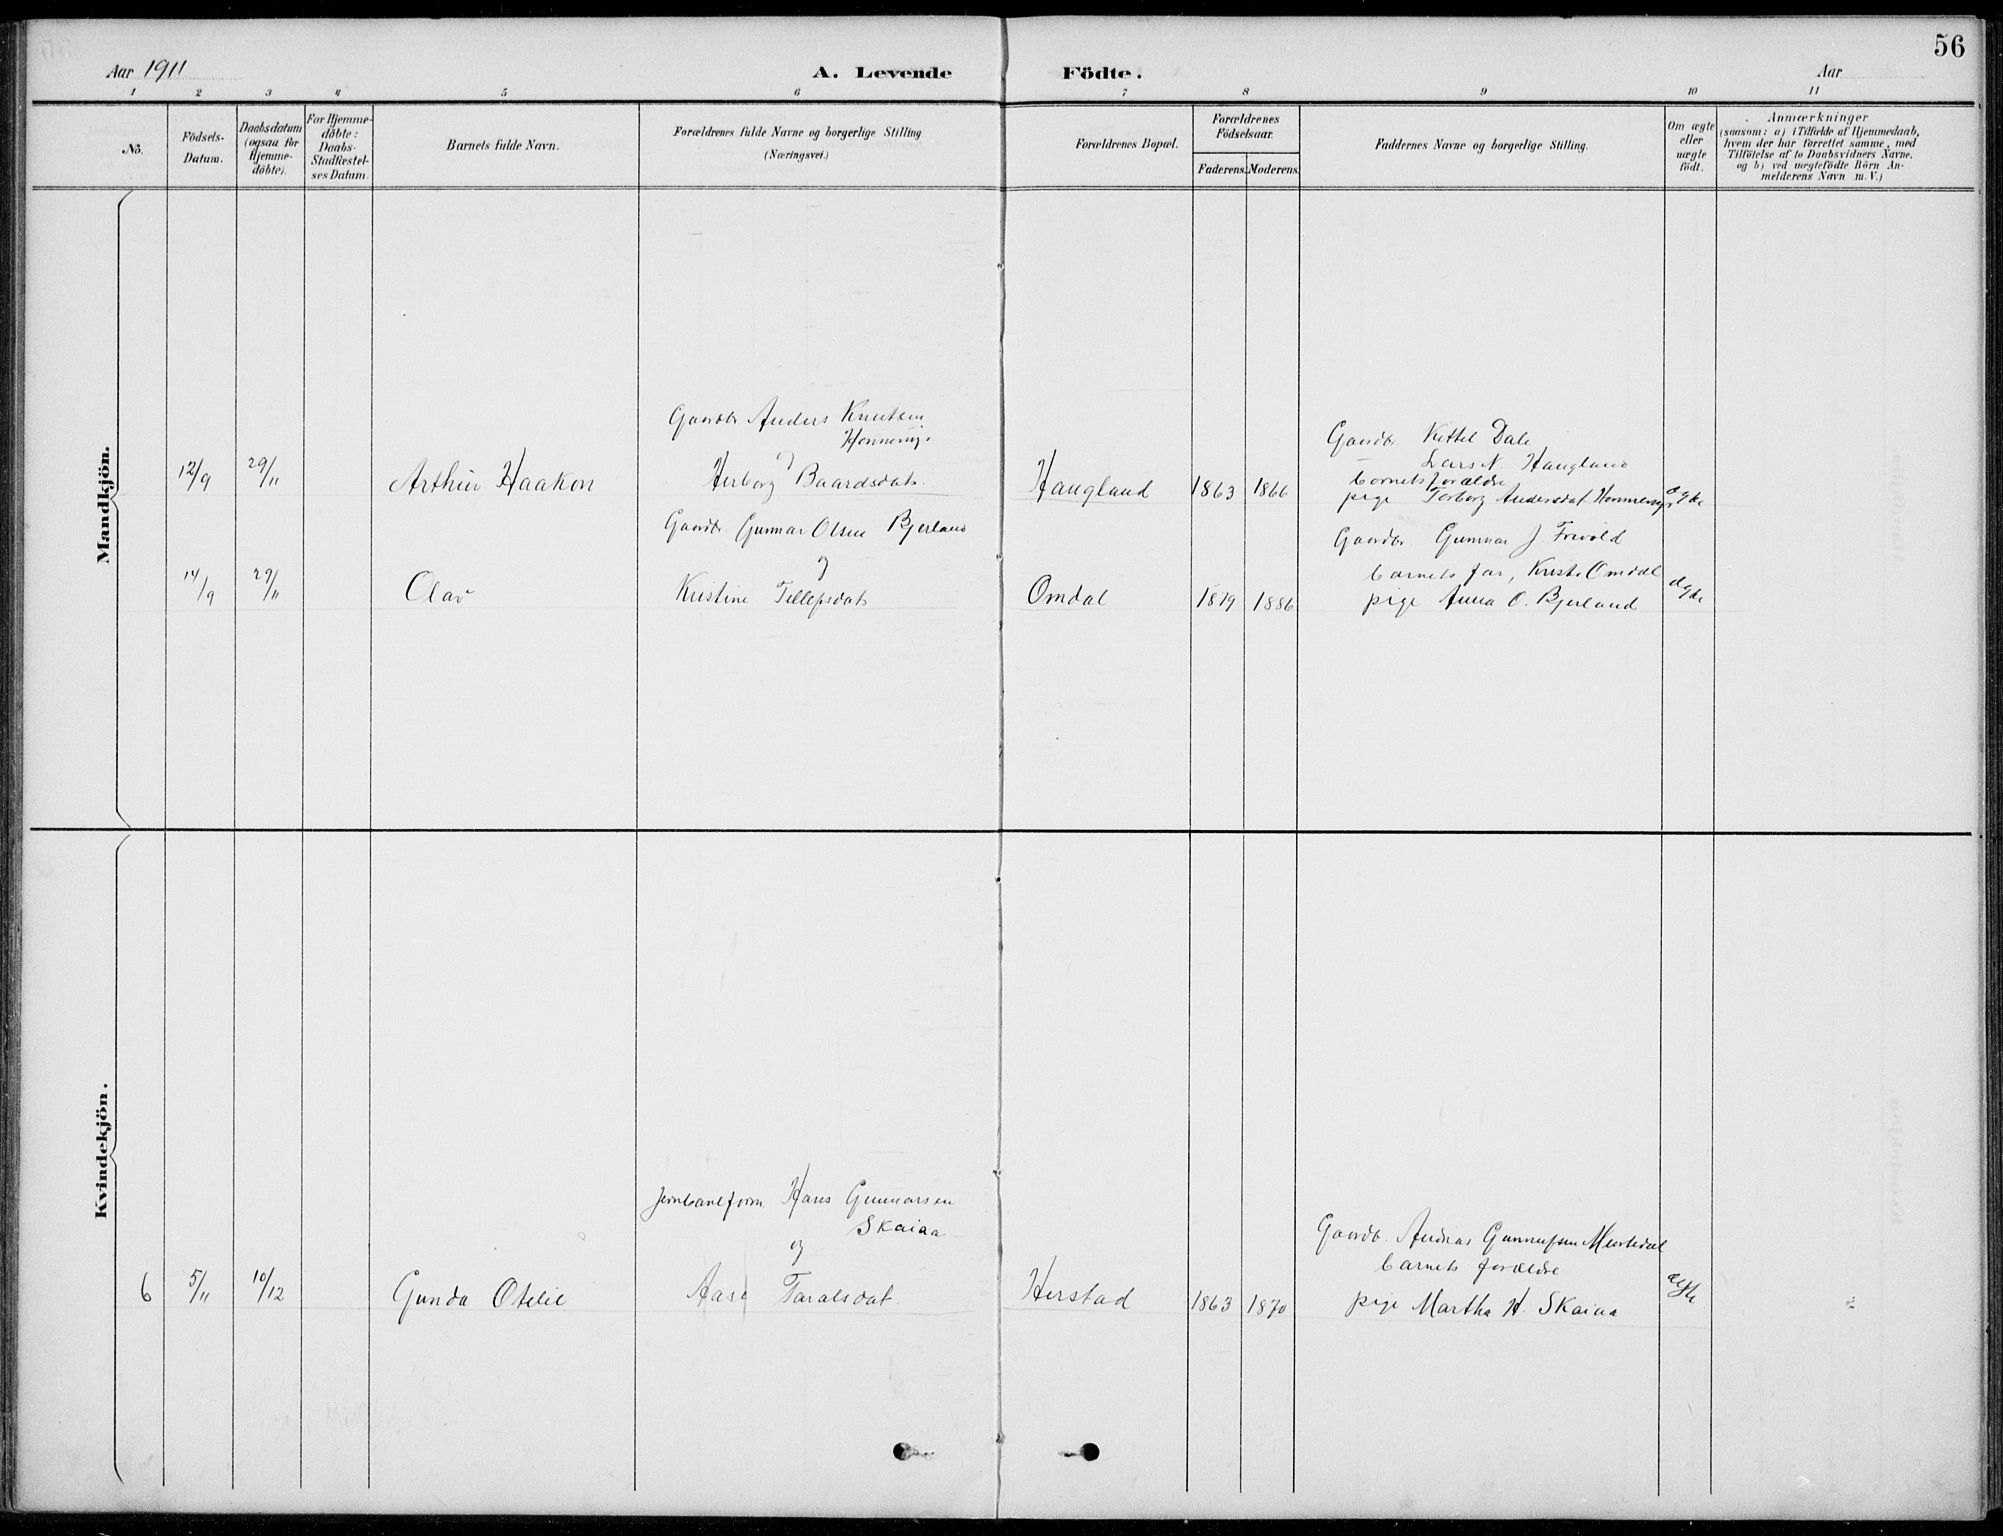 56
Aar 1911
A. Levende Födte.
Aar
1 2 3 4 5 6 7 8 9 10 11
No.
Födsels-Datum.
Daabsdatum (ogsaa for Hjemme-döbte).
For Hjemme-döbte: Daabs-Stadfæstel-ses Datum.
Barnets fulde Navn.
Forældrenes fulde Navne og borgerlige Stilling
(Næringsvei.)
Forældrenes Bopæl.
Forældrenes Födselsaar.
Faderens. Moderens.
Faddernes Navne og borgerlige Stilling.
Om ægte eller uægte födt.
Anmærkninger
(saasom: a) i Tilfælde af Hjemmedaab,
hvem der har forrettet samme, med
Tilföielse af to Daabsvidners Navne.
og b) ved uægtefödte Börn An-
melderens Navn m. V.)
Mandkjön.
Gaardbr Anders Knutsen
12/9 29/11 Arthur Haakon Herborg Baardsdat. Haugland 1863 1866
Gaardbr. Kittel Dale
Lars N. Haugland
barnets forældre
pige Torborg Andersdat. ægte
Gaardbr Gunnar Olsen Bjerland
og
14/9 29/11 Olav Kristine Tellefsdat Omdal 1879 1886
Gaardbr. Gunnar J. Frivold
barnets far, Krist. Omdal
pige Anna O. Bjerland ægte
Kvindekjön.
Hans Gunnarsen
Skaiaa
og
6 5/11 10/12 Gunda Otelie Aase Taralsdat. Herstad 1863 1870
Gaardb. Andreas
barnets forældre
pige Martha H. Skaiaa ægte